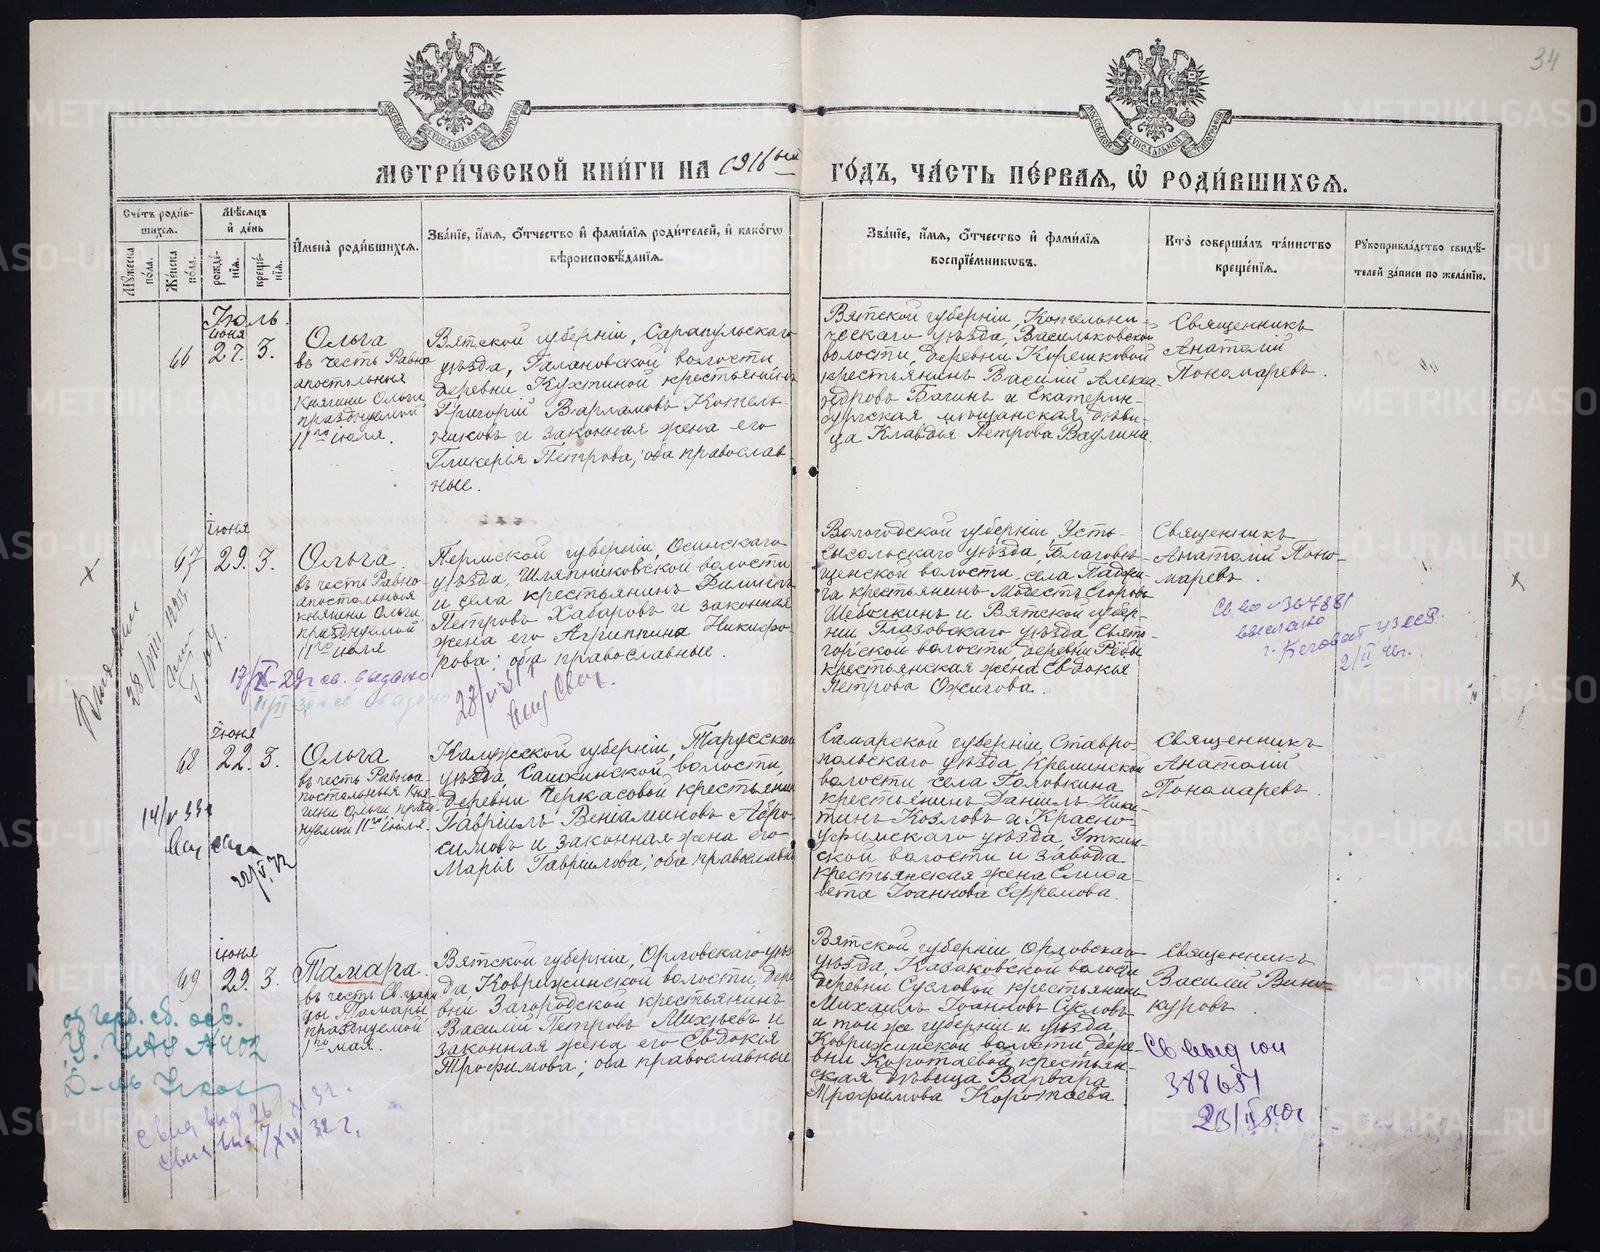 34
МОСКОВСКОЙ СѴНОДАЛЬНОЙ ТИПОГРАФІИ
МОСКОВСКОЙ СѴНОДАЛЬНОЙ ТИПОГРАФІИ
МЕТРИ́ЧЕСКОЙ КНИ́ГИ НА 1916ый
ГО́ДЪ, ЧА́СТЬ ПЕ́РВАЯ, Ѿ РОДИ́ВШИХСЯ.
Сче́тъ роди́в-
шихся.
Мѣ́сяцъ
и҆ де́нь
Мꙋ́жеска по́ла.
Же́нска по́ла.
рожде́-нїя.
креще́-нїя.
И҆мена̀ роди́вшихся.
Зва́нїе, и҆́мя, ѻ҆́тчество и҆ фами́лїя роди́телей, и҆ како́гѡ
вѣроисповѣ́данїя.
Зва́нїе, и҆́мя, ѻ҆́тчество и҆ фами́лїя
воспрїе́мникѡвъ.
Кто̀ соверша́лъ та́инство
креще́нїя.
Рꙋкоприкла́дство свидѣ́-
телей за́писи по жела́нїю.
Іюль.
іюня
66
27. 3.
Ольга
въ честь Равно
апостольныя
княгини Ольги,
празднуемой
11го іюля.
Вятской губерніи, Сарапульскаго
уѣзда, Галановской волости
деревни Кухтиной крестьянинъ
Григорій Варламовъ Котель-
никовъ и законная жена его
Гликерья Петрова; оба православ-
ные.
Вятской губерніи, Котельни-
ческаго уѣзда, Васильковской
волости, деревни Корешковой
крестьянинъ Василій Алекса-
ндровъ Багинъ и Екатерин-
бургская мѣщанская дѣви-
ца Клавдія Петрова Ваулина.
Священникъ
Анатолій
Пономаревъ.
іюня
67
29. 3.
Ольга.
въ честь Равно-
апостольныя
княгини Ольги,
празднуемой
11го іюля
Пермской губерніи, Осинскаго
уѣзда, Шляпниковской волости
и села крестьянинъ Филиппъ
Петровъ Хабаровъ и законная
жена его Агриппина Никифо-
рова; оба православные.
Вологодской губерніи, Усть-
сысольскаго уѣзда, Благовѣ-
щенской волости, села
крестьянинъ Модестъ Егоровъ
и Вятской губер-
ніи Глазовскаго уѣзда Свято-
горской волости деревни
крестьянская жена Евдокія
Петрова Ожигова.
Священникъ
Анатолій Поно-
маревъ.
выслано
28/VIII
17/XI-29г св. выдано
іюня
68
22. 3.
Ольга
въ честь Равноа-
постольныя Кня-
гини Ольги праз-
днуемой 11го іюля.
Калужской губерніи, Тарусскаго
уѣзда, Сашкинской волости,
деревни Черкасовой крестьянинъ
Гавріилъ Веніаминовъ Абро-
симовъ и законная жена его
Марія Гавріилова; оба православные
Самарской губерніи, Ставро-
польскаго уѣзда, Хрящевской
волости, села Головкина
крестьянинъ Даніилъ Ники-
тинъ Козловъ и Красно-
уфимскаго уѣзда, Уткин-
ской волости и завода
крестьянская жена Елиса-
вета Іоаннова Ефремова.
Священникъ
Анатолій
Пономаревъ.
22/V.72
іюня
69
29. 3.
Тамара.
въ честь Св. цари-
цы Тамары,
празднуемой
1го мая.
Вятской губерніи, Орловскаго уѣз-
да, Коврижинской волости, дере-
вни Загородской крестьянинъ
Василій Петровъ Михѣевъ и
законная жена его Евдокія
Трофимова; оба православные
Вятской губерніи, Орловскаго
уѣзда, Казаковской волости,
деревни Сусловой крестьянинъ
Михаилъ Іоанновъ Сусловъ
и той же губерніи и уѣзда
Коврижинской волости дере-
вни Коротаевой крестьян-
ская дѣвица Варвара
Трофимова Коротаева.
Священникъ
Василій Вино-
куровъ.
388651